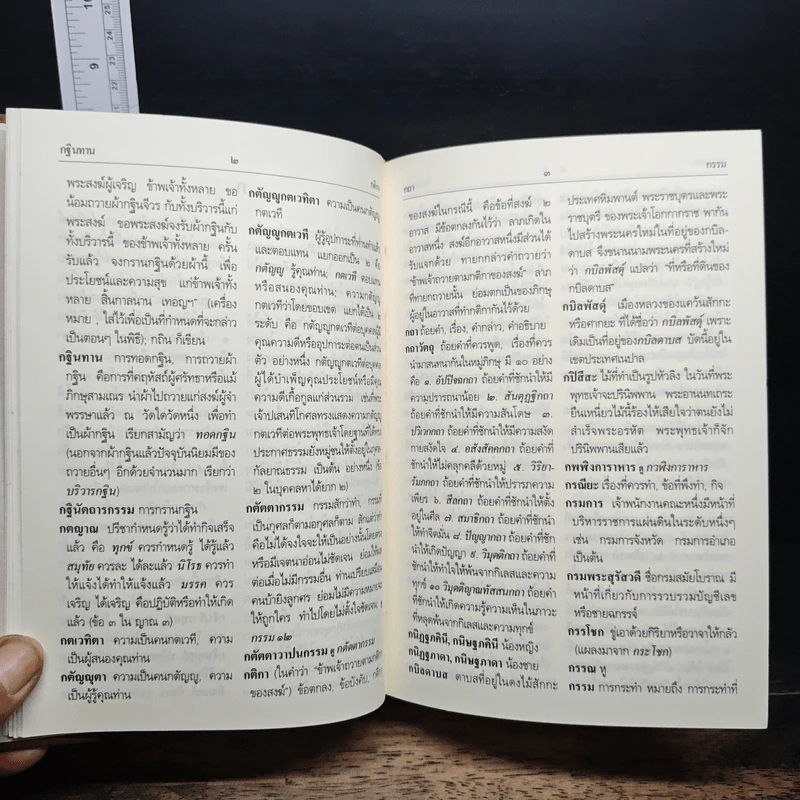 กฐินทาน
๒
กติกา
พระสงฆ์ผู้เจริญ ข้าพเจ้าทั้งหลาย ขอ
น้อมถวายผ้ากฐินจีวร กับทั้งบริวารนี้แก่
พระสงฆ์ ขอพระสงฆ์จงรับผ้ากฐินกับ
ทั้งบริวารนี้ ของข้าพเจ้าทั้งหลาย ครั้น
รับแล้ว จงกรานกฐินด้วยผ้านี้ เพื่อ
ประโยชน์และความสุข แก่ข้าพเจ้าทั้ง
หลาย สิ้นกาลนาน เทอญฯ" (เครื่อง
หมาย , ใส่ไว้เพื่อเป็นที่กำหนดที่จะกล่าว
เป็นตอนๆ ในพิธี); กถิน ก็เขียน
กฐินทาน การทอดกฐิน, การถวายผ้า
กฐิน คือการที่คฤหัสถ์ผู้ศรัทธาหรือแม้
ภิกษุสามเณร นำผ้าไปถวายแก่สงฆ์ผู้จำ
พรรษาแล้ว ณ วัดใดวัดหนึ่ง เพื่อทำ
เป็นผ้ากฐิน เรียกสามัญว่า ทอดกฐิน
(นอกจากผ้ากฐินแล้วปัจจุบันนิยมมีของ
ถวายอื่นๆ อีกด้วยจำนวนมาก เรียกว่า
บริวารกฐิน)
กฐินัตถารกรรม การกรานกฐิน
กตญาณ ปรีชากำหนดรู้ว่าได้ทำกิจเสร็จ
แล้ว คือ ทุกข์ ควรกำหนดรู้ ได้รู้แล้ว
สมุทัย ควรละ ได้ละแล้ว นิโรธ ควรทำ
ให้แจ้งได้ทำให้แจ้งแล้ว มรรค ควร
เจริญ ได้เจริญ คือปฏิบัติหรือทำให้เกิด
แล้ว (ข้อ ๓ ใน ญาณ ๓)
กตเวทิตา ความเป็นคนกตเวที, ความ
เป็นผู้สนองคุณท่าน
กตัญญุตา ความเป็นคนกตัญญู, ความ
เป็นผู้รู้คุณท่าน
กตัญญูกตเวทิตา ความเป็นคนกตัญญู
กตเวที
กตัญญูกตเวที ผู้รู้อุปการะที่ท่านทำแล้ว
และตอบแทน แยกออกเป็น ๒ คือ
กตัญญู รู้คุณท่าน; กตเวที ตอบแทน
หรือสนองคุณท่าน; ความกตัญญู
กตเวทีว่าโดยขอบเขต แยกได้เป็น ๒
ระดับ คือ กตัญญูกตเวทีต่อบุคคลผู้มี
คุณความดีหรืออุปการะต่อตนเป็นส่วน
ตัว อย่างหนึ่ง กตัญญูกตเวทีต่อบุคคล
ผู้ได้บำเพ็ญคุณประโยชน์หรือมีคุณ
ความดีเกื้อกูลแก่ส่วนรวม เช่นที่พระ
เจ้าปเสนทิโกศลทรงแสดงความกตัญญู
กตเวทีต่อพระพุทธเจ้าโดยฐานที่ได้ทรง
ประกาศธรรมยังหมู่ชนให้ตั้งอยู่ใน
กัลยาณธรรม เป็นต้น อย่างหนึ่ง (ข้อ
๒ ในบุคคลหาได้ยาก ๒)
กตัตตากรรม กรรมสักว่าทำ, กรรมที่
เป็นกุศลก็ตามอกุศลก็ตาม สักแต่ว่าทำ
คือไม่ได้จงใจจะให้เป็นอย่างนั้นโดยตรง
หรือมีเจตนาอ่อนไม่ชัดเจน ย่อมให้ผล
ต่อเมื่อไม่มีกรรมอื่น ท่านเปรียบเสมือน
คนบ้ายิงลูกศร ย่อมไม่มีความหมายจะ
ให้ถูกใคร ทำไปโดยไม่ตั้งใจชัดเจน
กรรม ๑๒
กตัตตาวาปนกรรม ดู กตัตตากรรม
กติกา (ในคำว่า "ข้าพเจ้าถวายตามกติกา
ของสงฆ์") ข้อตกลง, ข้อบังคับ, กติกา
กถา
๓
กรรม
ของสงฆ์ในกรณีนี้ คือข้อที่สงฆ์ ๒
อาวาส มีข้อตกลงกันไว้ว่า ลาภเกิดใน
อาวาสหนึ่ง สงฆ์อีกอาวาสหนึ่งมีส่วนได้
รับแจกด้วย ทายกกล่าวคำถวายว่า
"ข้าพเจ้าถวายตามกติกาของสงฆ์" ลาภ
ที่ทายกถวายนั้น ย่อมตกเป็นของภิกษุ
ผู้อยู่ในอาวาสที่ทำกติกากันไว้ด้วย
กถา ถ้อยคำ, เรื่อง, คำกล่าว, คำอธิบาย
กถาวัตถุ ถ้อยคำที่ควรพูด, เรื่องที่ควร
นำมาสนทนากันในหมู่ภิกษุ มี ๑๐ อย่าง
คือ ๑. อัปปิจฉกถา ถ้อยคำที่ชักนำให้มี
ความปรารถนาน้อย ๒. สันตุฏฐิกถา
ถ้อยคำที่ชักนำให้มีความสันโดษ ๓.
ปวิเวกกถา ถ้อยคำที่ชักนำให้มีความสงัด
กายสงัดใจ ๔. อสังสัคคกถา ถ้อยคำที่
ชักนำให้ไม่คลุกคลีด้วยหมู่ ๕. วิริยา-
รัมภกถา ถ้อยคำที่ชักนำให้ปรารภความ
เพียร ๖. สีลกถา ถ้อยคำที่ชักนำให้ตั้ง
อยู่ในศีล ๗. สมาธิกถา ถ้อยคำที่ชักนำ
ให้ทำจิตมั่น ๘. ปัญญากถา ถ้อยคำที่ชัก
นำให้เกิดปัญญา ๙. วิมุตติกถา ถ้อยคำที่
ชักนำให้ทำใจให้พ้นจากกิเลสและความ
ทุกข์ ๑๐ วิมุตติญาณทัสสนกถา ถ้อยคำที่
ชักนำให้เกิดความรู้ความเห็นในภาวะ
ที่หลุดพ้นจากกิเลสและความทุกข์
กนิฏฐภคินี, กนิษฐภคินี น้องหญิง
กนิฏฐภาดา, กนิษฐภาดา น้องชาย
กบิลดาบส ดาบสที่อยู่ในดงไม้สักกะ
ประเทศหิมพานต์ พระราชบุตรและพระ
ราชบุตรี ของพระเจ้าโอกกากราช พากัน
ไปสร้างพระนครใหม่ในที่อยู่ของกบิล-
ดาบส จึงขนานนามพระนครที่สร้างใหม่
ว่า กบิลพัสดุ์ แปลว่า "ที่หรือที่ดินของ
กบิลดาบส"
กบิลพัสดุ์ เมืองหลวงของแคว้นสักกะ
หรือศากยะ ที่ได้ชื่อว่า กบิลพัสดุ์ เพราะ
เดิมเป็นที่อยู่ของกบิลดาบส บัดนี้อยู่ใน
เขตประเทศเนปาล
กปิสีสะ ไม้ที่ทำเป็นรูปหัวลิง ในวันที่พระ
พุทธเจ้าจะปรินิพพาน พระอานนทเถระ
ยืนเหนี่ยวไม้นี้ร้องไห้เสียใจว่าตนยังไม่
สำเร็จพระอรหัต พระพุทธเจ้าก็จัก
ปรินิพพานเสียแล้ว
กพฬิงการาหาร ดู กวฬิงการาหาร
กรณียะ เรื่องที่ควรทำ, ข้อที่พึงทำ, กิจ
กรมการ เจ้าพนักงานคณะหนึ่งมีหน้าที่
บริหารราชการแผ่นดินในระดับหนึ่งๆ
เช่น กรมการจังหวัด กรมการอำเภอ
เป็นต้น
กรมพระสุรัสวดี ชื่อกรมสมัยโบราณ มี
หน้าที่เกี่ยวกับการรวบรวมบัญชีเลข
หรือชายฉกรรจ์
กรรโชก ขู่เอาด้วยกิริยาหรือวาจาให้กลัว
(แผลงมาจาก กระโชก)
กรรณ หู
กรรม การกระทำ หมายถึง การกระทำที่